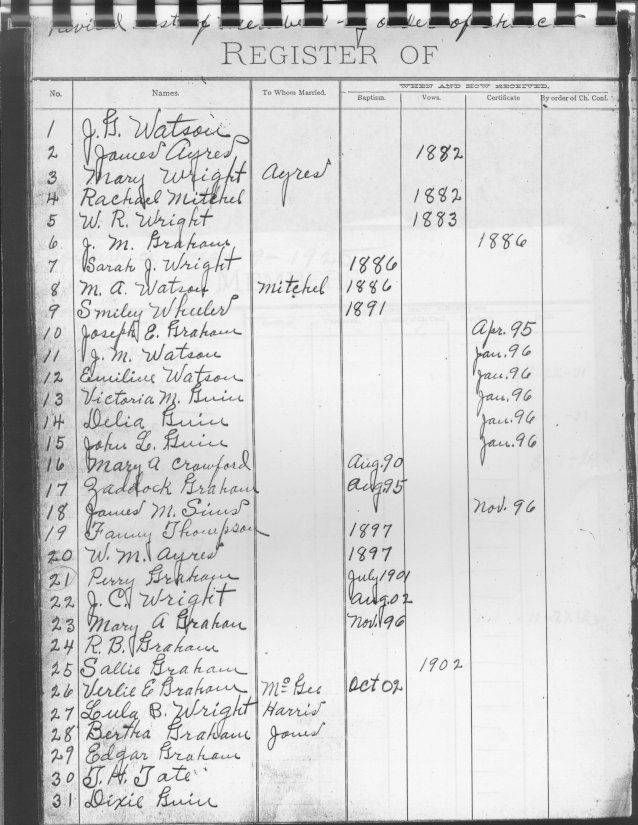 revised list of members - order of
REGISTER OF
No. Names. To Whom Married. WHEN AND HOW RECEIVED.
Baptism. Vows. Certificate By order of Ch. Conf.
1 J. G. Watson
2 James Ayres 1882
3 Mary Wright Ayres
4 Rachael Mitchel 1882
5 W. R. Wright 1883
6. J. M. Graham 1886
7. Sarah J. Wright 1886
8 M. A. Watson Mitchel 1886
9 Smiley Wheeler 1891
10 Joseph E. Graham Apr. 95
11 J. M. Watson Jan. 96
12 Emiline Watson Jan. 96
13 Victoria M. Guin Jan. 96
14 Delia Guin Jan. 96
15 John L. Guin Jan. 96
16 Mary A Crawford Aug. 90
17 Zaddock Graham Aug 95
18 James M. Sims Nov. 96
19 Fanny Thompson 1897
20 W. M. Ayres 1897
21 Perry Graham July 1901
22 J. C. Wright Aug. 02
23 Mary A Graham Nov. 96
24 R. B. Graham
25 Sallie Graham 1902
26 Verlie E Graham McGee Oct 02
27 Lula B. Wright Harris
28 Bertha Graham Jones
29 Edgar Graham
30 T. H. Tate
31 Dixie Guin